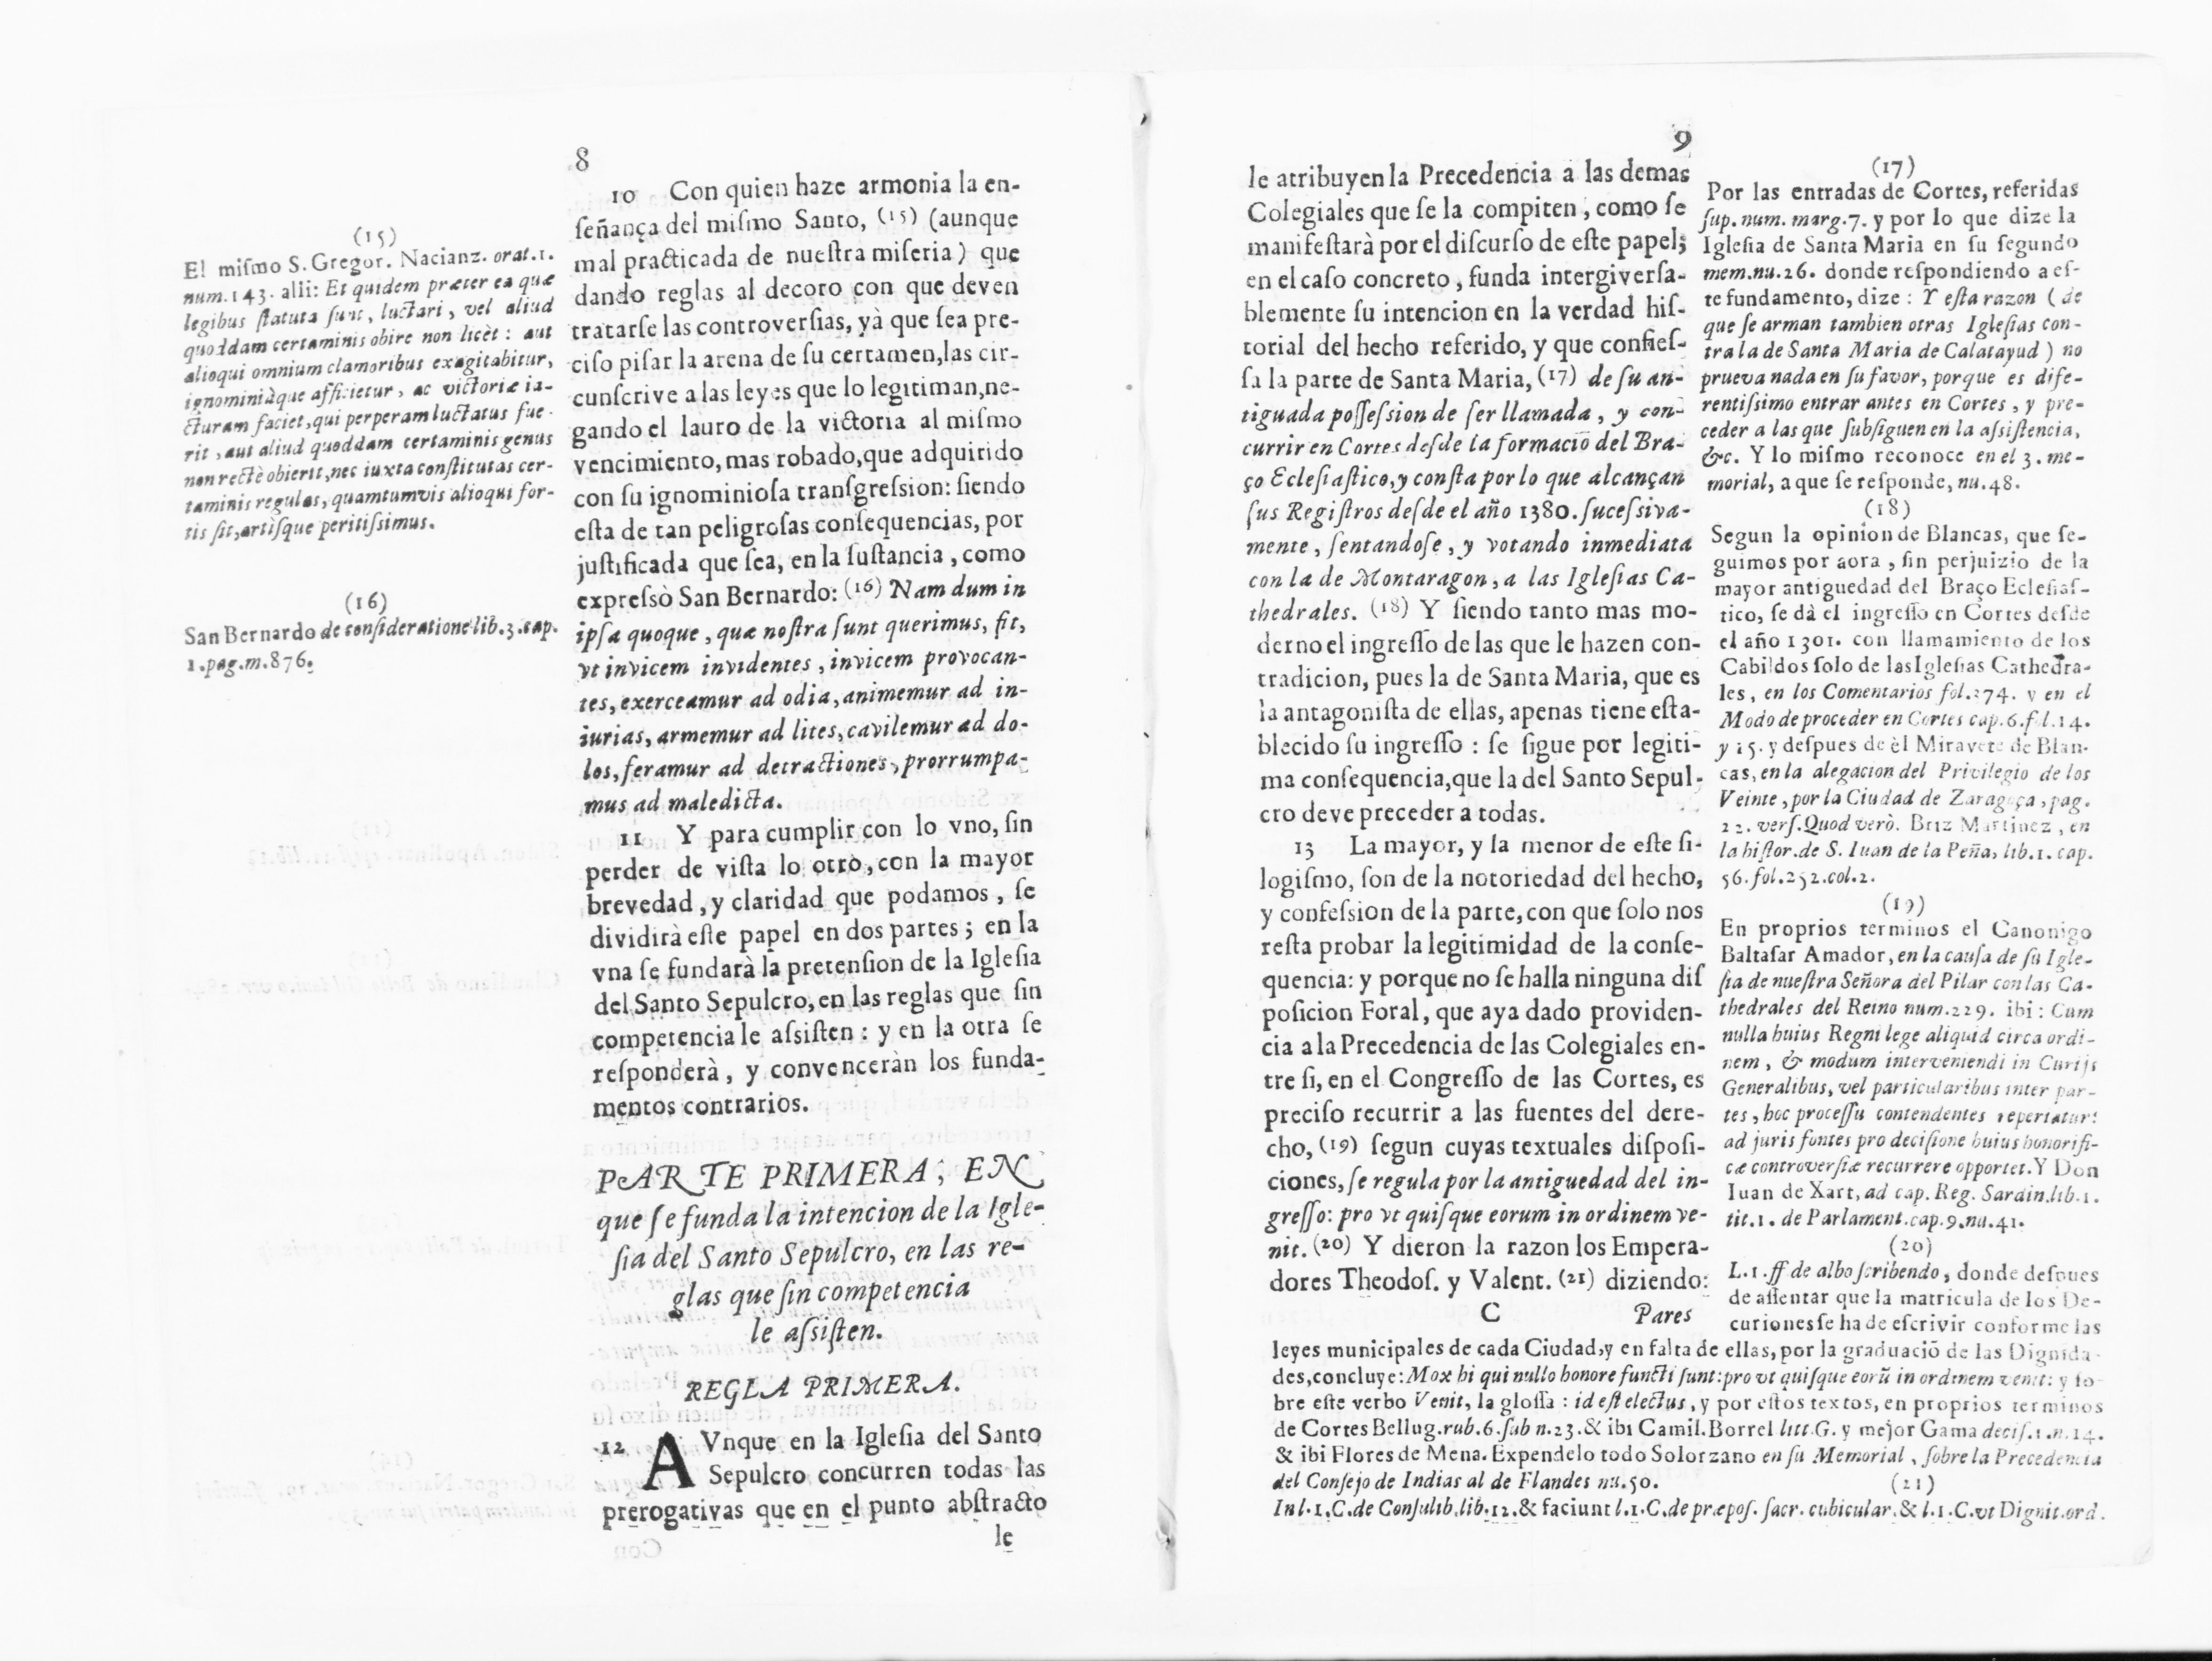 8
10 Con quien haze armonia la en-
ſeñança del miſmo Santo, (15) (aunque
mal practicada de nueſtra miſeria) que
dando reglas al decoro con que deven
tratarſe las controverſias, yà que ſea pre-
ciſo piſar la arena de ſu certamen,las cir-
cunſcrive a las leyes que lo legitiman,ne-
gando el lauro de la victoria al miſmo
vencimiento, mas robado,que adquirido
con ſu ignominioſa tranſgreſsion: ſiendo
eſta de tan peligroſas conſequencias, por
juſtificada que ſea, en la ſuſtancia , como
expreſsò San Bernardo: (16) Nam dum in
ipſa quoque , quæ noſtra ſunt querimus, fit,
vt invicem invidentes , invicem provocan-
tes, exerceamur ad odia, animemur ad in-
iurias, armemur ad lites, cavilemur ad do-
los, feramur ad detractiones, prorrumpa-
mus ad maledicta.
11 Y para cumplir con lo vno, ſin
perder de viſta lo otro, con la mayor
brevedad , y claridad que podamos , ſe
dividirà eſte papel en dos partes ; en la
vna ſe fundarà la pretenſion de la Igleſia
del Santo Sepulcro, en las reglas que ſin
competencia le aſsiſten : y en la otra ſe
reſponderà , y convenceràn los funda-
mentos contrarios.
PARTE PRIMERA, EN
que ſe funda la intencion de la Igle-
ſia del Santo Sepulcro, en las re-
glas que ſin competencia
le aſsiſten.
REGLA PRIMERA.
12 AVnque en la Igleſia del Santo
Sepulcro concurren todas las
prerogativas que en el punto abſtracto
le
(15)
El miſmo S. Gregor. Nacianz. orat.1.
num.143. alli: Et quidem præter ea quæ
legibus ſtatuta ſunt, luctari , vel aliud
quoddam certaminis obire non licèt : aut
alioqui omnium clamoribus exagitabitur,
ignominiàque afficietur , ac victoriæ ia-
cturam faciet, qui perperam luctatus fue-
rit , aut aliud quoddam certaminis genus
non rectè obierit, nec iuxta conſtitutas cer-
taminis regulas, quamtumvis alioqui for-
tis ſit, artiſque peritiſsimus.
(16)
San Bernardo de conſideratione lib.3.cap.
1.pag.m.876.
9
le atribuyen la Precedencia a las demas
Colegiales que ſe la compiten , como ſe
manifeſtarà por el diſcurſo de eſte papel;
en el caſo concreto , funda intergiverſa-
blemente ſu intencion en la verdad hiſ-
torial del hecho referido, y que confieſ-
ſa la parte de Santa Maria, (17) de ſu an-
tiguada poſſeſsion de ſer llamada , y con-
currir en Cortes deſde la formaciõ del Bra-
ço Ecleſiaſtico,y conſta por lo que alcançan
ſus Regiſtros deſde el año 1380. ſuceſsiva-
mente , ſentandoſe , y votando inmediata
con la de Montaragon, a las Igleſias Ca-
thedrales. (18) Y ſiendo tanto mas mo-
derno el ingreſſo de las que le hazen con-
tradicion, pues la de Santa Maria, que es
la antagoniſta de ellas, apenas tiene eſta-
blecido ſu ingreſſo : ſe ſigue por legiti-
ma conſequencia,que la del Santo Sepul-
cro deve preceder a todas.
13 La mayor, y la menor de eſte ſi-
logiſmo, ſon de la notoriedad del hecho,
y confeſsion de la parte, con que ſolo nos
reſta probar la legitimidad de la conſe-
quencia: y porque no ſe halla ninguna diſ
poſicion Foral , que aya dado providen-
cia a la Precedencia de las Colegiales en-
tre ſi, en el Congreſſo de las Cortes, es
preciſo recurrir a las fuentes del dere-
cho, (19) ſegun cuyas textuales diſpoſi-
ciones, ſe regula por la antiguedad del in-
greſſo: pro vt quiſque eorum in ordinem ve-
nit. (20) Y dieron la razon los Empera-
dores Theodoſ. y Valent. (21) diziendo:
C Pares
(17)
Por las entradas de Cortes, referidas
ſup. num. marg.7. y por lo que dize la
Igleſia de Santa Maria en ſu ſegundo
mem.nu.26. donde reſpondiendo a eſ-
te fundamento, dize : Y eſta razon ( de
que ſe arman tambien otras Igleſias con-
tra la de Santa Maria de Calatayud ) no
prueva nada en ſu favor, porque es dife-
rentiſsimo entrar antes en Cortes , y pre-
ceder a las que ſubſiguen en la aſsiſtencia,
&c. Y lo miſmo reconoce en el 3. me-
morial, a que ſe reſponde, nu.48.
(18)
Segun la opinion de Blancas, que ſe-
guimos por aora , ſin perjuizio de la
mayor antiguedad del Braço Ecleſiaſ-
tico, ſe dà el ingreſſo en Cortes deſde
el año 1301. con llamamiento de los
Cabildos ſolo de las Igleſias Cathedra-
les, en los Comentarios fol.274. y en el
Modo de proceder en Cortes cap.6.fol.14.
y 15. y deſpues de èl Miravete de Blan-
cas, en la alegacion del Privilegio de los
Veinte , por la Ciudad de Zaragoça , pag.
22. verſ. Quod verò. Briz Martinez , en
la hiſtor.de S. Iuan de la Peña, lib.1. cap.
56.fol.252.col.2.
(19)
En proprios terminos el Canonigo
Baltaſar Amador, en la cauſa de ſu Igle-
ſia de nueſtra Señora del Pilar con las Ca-
thedrales del Reino num.229. ibi : Cum
nulla huius Regni lege aliquid circa ordi-
nem , & modum interveniendi in Curijs
Generalibus, vel particularibus inter par-
tes , hoc proceſſu contendentes repertatur:
ad juris fontes pro deciſione huius honorifi-
cæ controverſiæ recurrere opportet.Y Don
Iuan de Xart, ad cap. Reg. Sardin.lib.1.
tit.1. de Parlament.cap.9.nu.41.
(20)
L.1.ff de albo ſcribendo , donde deſpues
de aſſentar que la matricula de los De-
curiones ſe ha de eſcrivir conforme las
leyes municipales de cada Ciudad,y en falta de ellas, por la graduaciõ de las Dignida-
des,concluye: Mox hi qui nullo honore functi ſunt:pro vt quiſque eorũ in ordinem venit: y ſo-
bre eſte verbo Venit, la gloſſa : id eſt electus, y por eſtos textos, en proprios terminos
de Cortes Bellug.rub.6.ſub n.23.& ibi Camil.Borrel litt.G. y mejor Gama deciſ.1.n.14.
& ibi Flores de Mena. Expendelo todo Solorzano en ſu Memorial , ſobre la Precedencia
del Conſejo de Indias al de Flandes nu.50.
(21)
In l.1.C.de Conſulib.lib.12.& faciunt l.1.C.de præpoſ. ſacr. cubicular.& l.1.C.vt Dignit.ord.